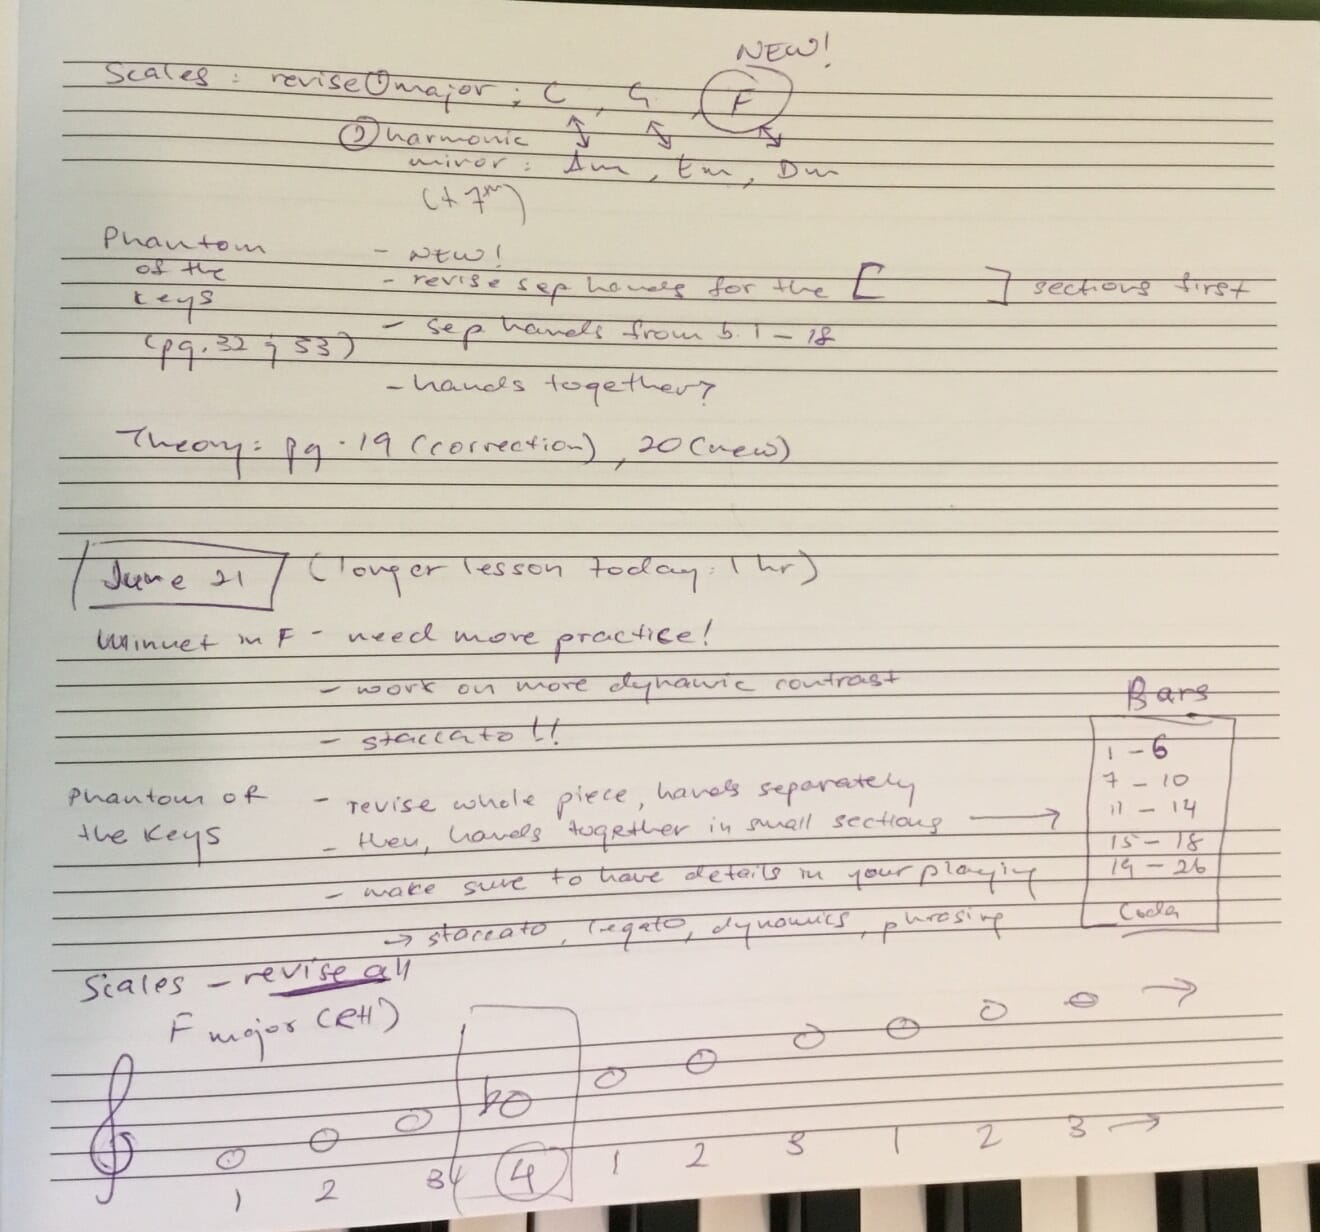 NEW!
Scales : revise ① major ; C , G , F
② harmonic
minor : Am , Em , Dm
Phantom
of the
keys
(pg. 32 ; 53)
- NEW!
- revise sep hands for the [ ] sections first
- sep hands from b. 1 - 18
- hands together?
Theory: pg. 19 (correction), 20 (new)
June 21 (longer lesson today: 1 hr)
Minuet in F - need more practice!
- work on more dynamic contrast
- staccato !!
Phantom of
the keys
- revise whole piece, hands separately
- then, hands together in small sections →
- make sure to have details in your playing
→ staccato, legato, dynamics, phrasing
Bars
1 - 6
7 - 10
11 - 14
15 - 18
19 - 26
Coda
Scales - revise all
F major (RH)
♭
1 2 3 4 1 2 3 1 2 3 →